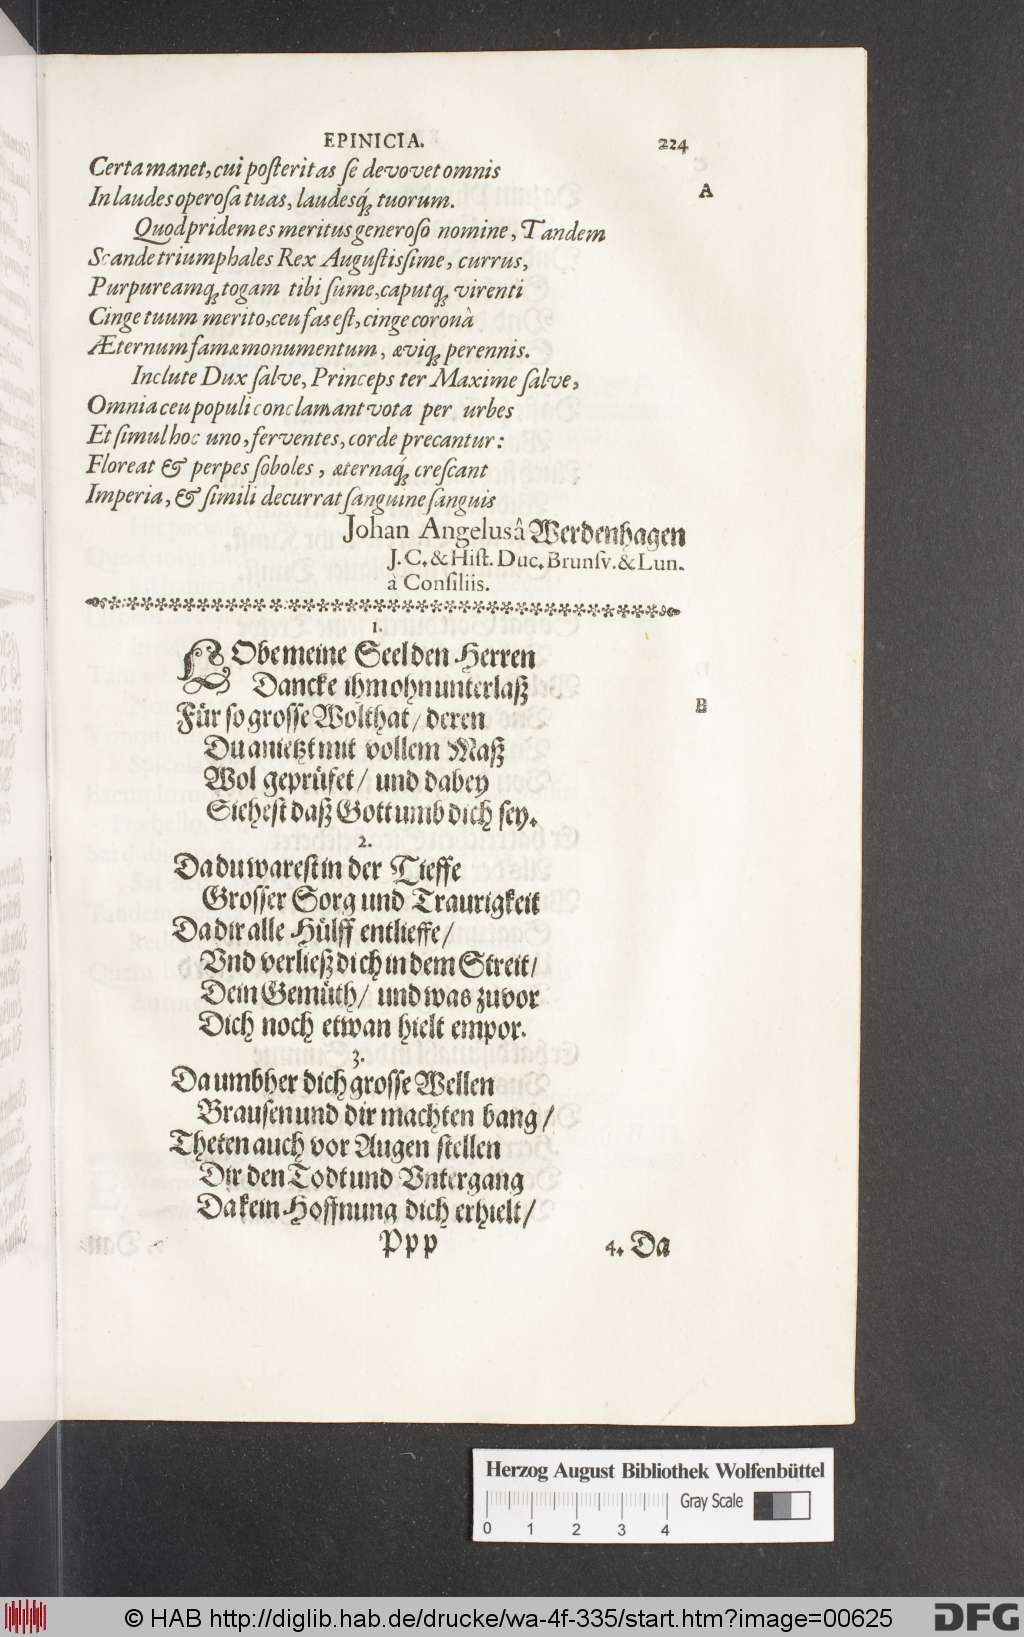 EPINICIA. 224
Certa manet, cui posteritas se devovet omnis
A
In laudes operosa tuas, laudesq́ꝫ tuorum.
Quod pridem es meritus generoso nomine, Tandem
Scande triumphales Rex Augustissime, currus,
Purpureamqꝫ togam tibi sume, caputqꝫ virenti
Cinge tuum merito, ceu fas est, cinge coronà
Æternum famæ monumentum, æviqꝫ perennis.
Inclute Dux salve, Princeps ter Maxime salve,
Omnia ceu populi conclamant vota per urbes
Et simul hoc uno, ferventes, corde precantur:
Floreat & perpes soboles, æternaq́ꝫ crescant
Imperia, & simili decurrat sanguine sanguis
Johan Angelus â Werdenhagen
J. C. & Hist. Duc. Brunsv. & Lun.
à Consiliis.
1.
LObe meine Seel den Herren
Dancke ihm ohn unterlaß
Für so grosse Wolthat / deren
B
Du anietzt mit vollem Maß
Wol geprüfet / und dabey
Siehest daß Gott umb dich sey.
2.
Da du warest in der Tieffe
Grosser Sorg und Traurigkeit
Da dir alle Hülff entlieffe /
Vnd verließ dich in dem Streit /
Dein Gemüth / und was zuvor
Dich noch etwan hielt empor.
3.
Da umbher dich grosse Wellen
Brausen und dir machten bang /
Theten auch vor Augen stellen
Dir den Todt und Vntergang
Da kein Hoffnung dich erhielt /
Ppp 4. Da
Herzog August Bibliothek Wolfenbüttel
Gray Scale
0 1 2 3 4
© HAB http://diglib.hab.de/drucke/wa-4f-335/start.htm?image=00625
DFG